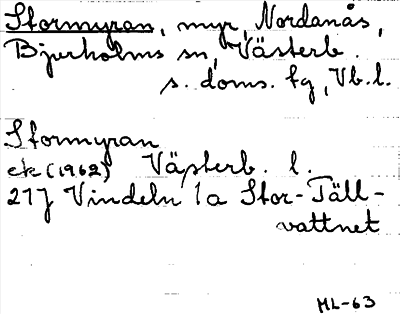 Stormyran, myr, Nordanås,
Bjurholms sn, Västerb.
s. doms. fg, Vb. l.
Stormyran
ek (1962) Västerb. l.
21J Vindeln 1a Stor-Täll-
vattnet
ML-63